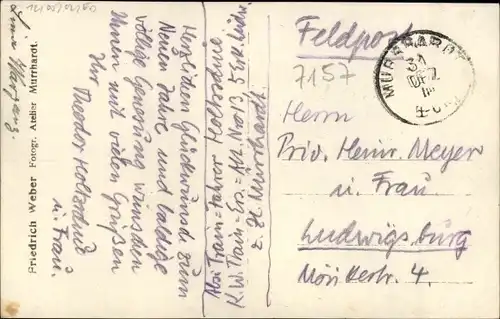 12/00702/80
Friedrich Weber Fotogr. Atelier Murrhardt.
Herzlichen Glückwunsch zum
Neuen Jahre und baldige
völlige Genesung wünschen
Ihnen mit vielen Grüßen
Ihr
Theodor
u. Frau.
Abs. Train=Fahrer
K. W. Train=Ers.=Abt. No 13, 5 Esk.
z. Zt. Murrhardt.
Feldpost
7157
MURRHARDT
31
DEZ
Herrn
Priv. Heinr. Meyer
u. Frau.
Ludwigsburg
4.